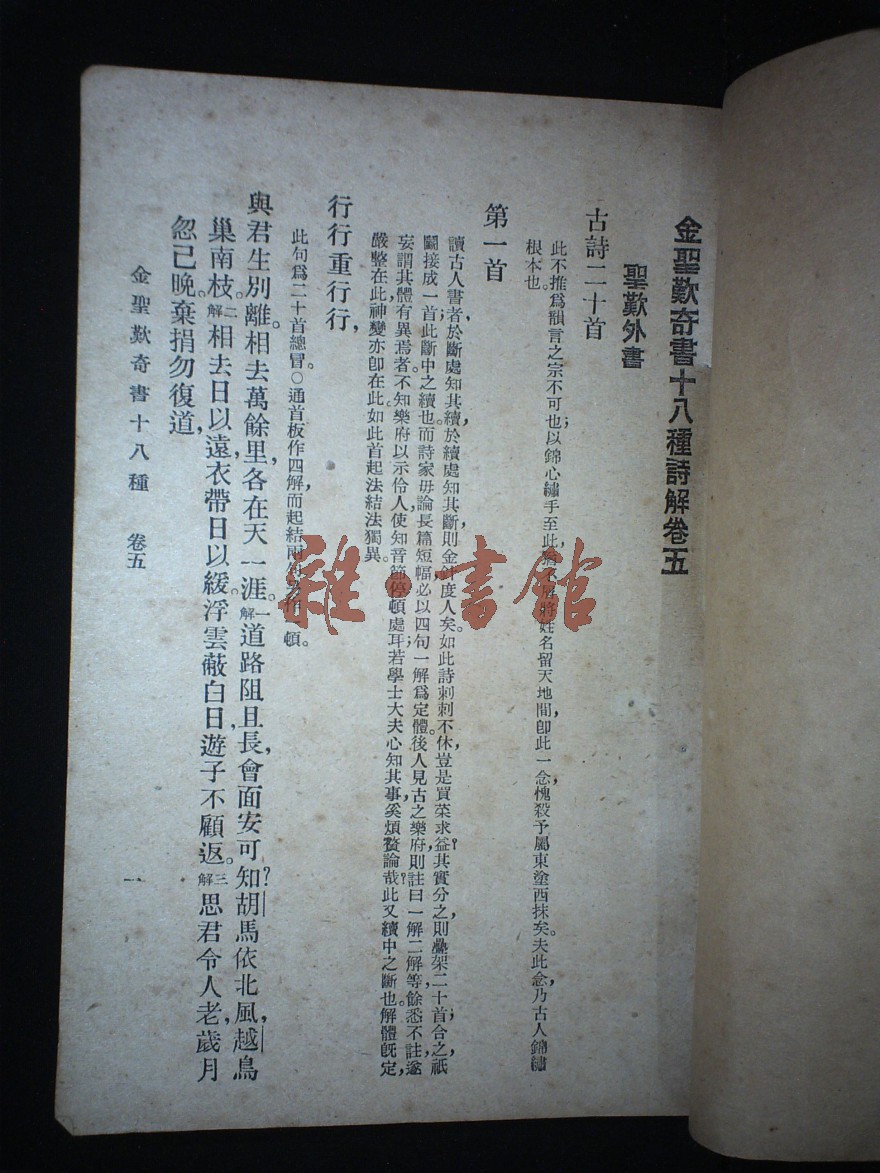 金聖歎奇書十八種詩解卷五
聖歎外書
古詩二十首
此不推爲韻言之宗不可也；以錦心繡手至此，不將姓名留天地間，卽此一念，愧殺予屬東塗西抹矣。夫此念，乃古人錦繡
根本也。
第一首
讀古人書者，於斷處知其續，於續處知其斷，則金針度人矣。如此詩刺刺不休，豈是買菜求益？其實分之，則疊架二十首；合之，祇
鬭接成一首；此斷中之續也。而詩家毋論長篇短幅，必以四句一解爲定體。後人見古之樂府，則註曰一解二解等，餘悉不註，遂
妄謂其體有異焉者。不知樂府以示伶人，使知音節停頓處耳；若學士大夫心知其事，奚煩贅論哉？此又續中之斷也。解體旣定，
嚴整在此，神變亦卽在此。如此首起法結法獨異。
行行重行行，
此句爲二十首總冒。○通首板作四解，而起結兩頓。
與君生別離。相去萬餘里，各在天一涯。一解道路阻且長，會面安可知？胡馬依北風，越鳥
巢南枝。二解相去日以遠，衣帶日以緩。浮雲蔽白日，遊子不顧返。三解思君令人老，歲月
忽已晚。棄捐勿復道，
金聖歎奇書十八種　卷五
一
雜·書館